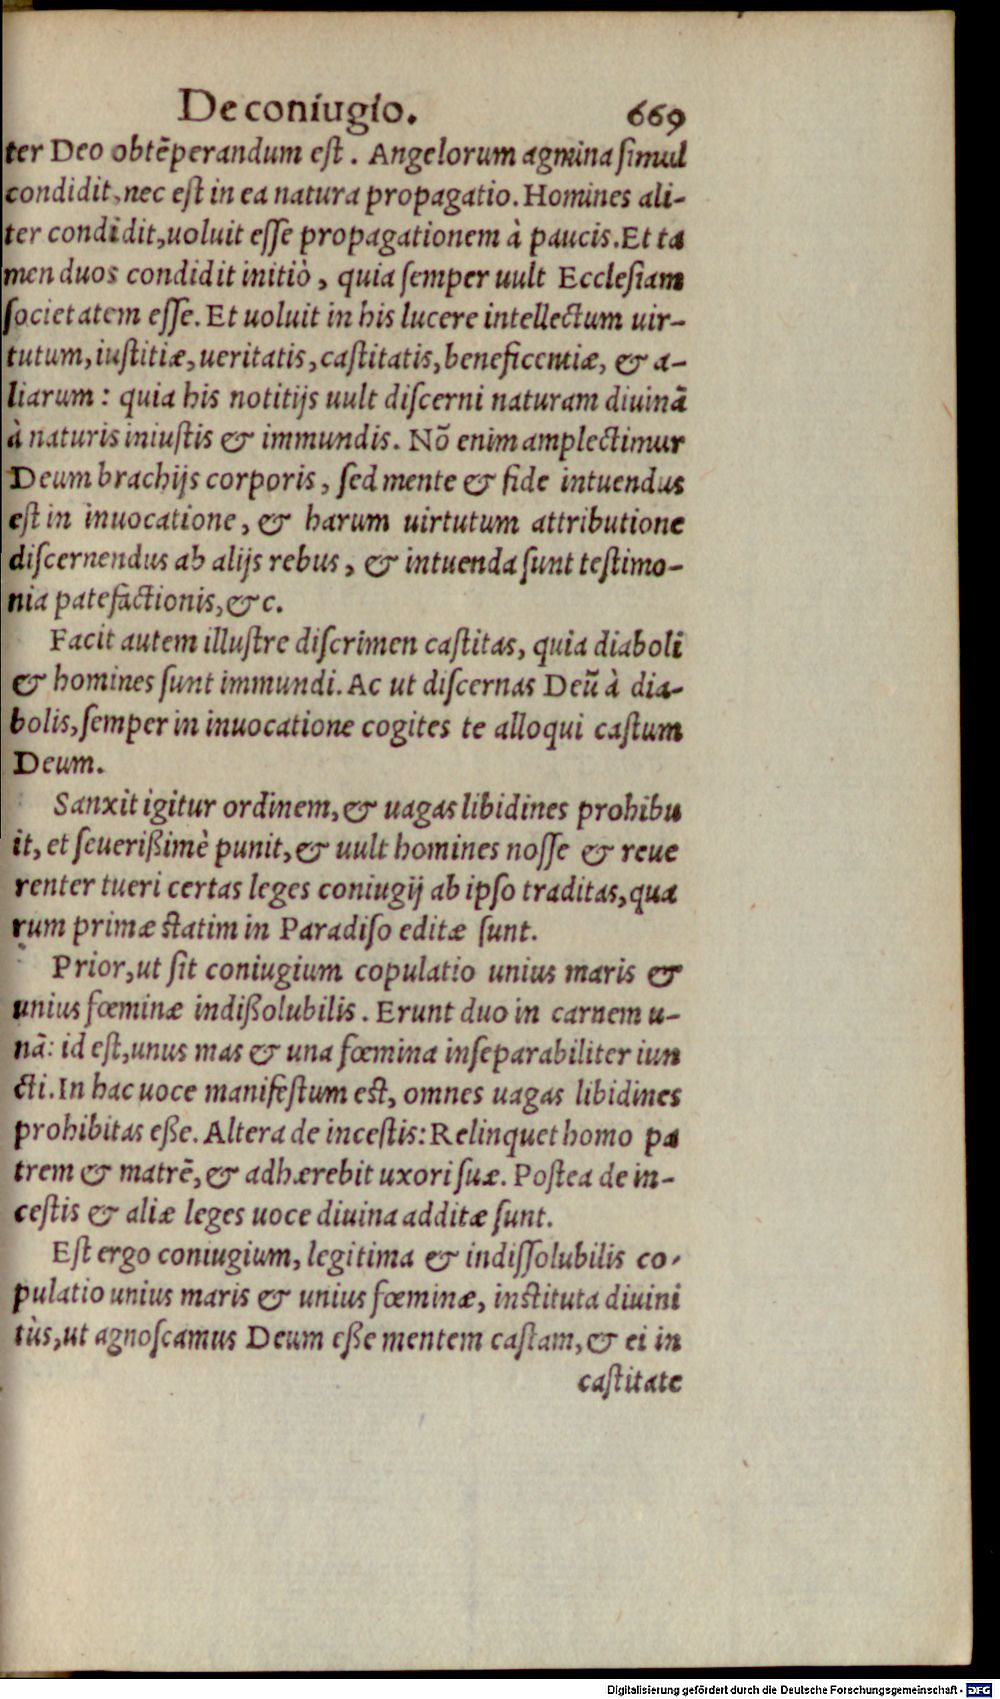 De coniugio. 669
ter Deo obtẽperandum est. Angelorum agmina simul
condidit, nec est in ea natura propagatio. Homines ali-
ter condidit, uoluit esse propagationem à paucis. Et ta
men duos condidit initiò, quia semper uult Ecclesiam
societatem esse. Et uoluit in his lucere intellectum uir-
tutum, iustitiæ, ueritatis, castitatis, beneficentiæ, & a-
liarum: quia his notitijs uult discerni naturam diuinã
à naturis iniustis & immundis. Nõ enim amplectimur
Deum brachijs corporis, sed mente & fide intuendus
est in inuocatione, & harum uirtutum attributione
discernendus ab alijs rebus, & intuenda sunt testimo-
nia patefactionis, &c.
Facit autem illustre discrimen castitas, quia diaboli
& homines sunt immundi. Ac ut discernas Deũ à dia-
bolis, semper in inuocatione cogites te alloqui castum
Deum.
Sanxit igitur ordinem, & uagas libidines prohibu
it, et seuerißimè punit, & uult homines nosse & reue
renter tueri certas leges coniugij ab ipso traditas, qua
rum primæ statim in Paradiso editæ sunt.
Prior, ut sit coniugium copulatio unius maris &
unius fœminæ indißolubilis. Erunt duo in carnem u-
nã: id est, unus mas & una fœmina inseparabiliter iun
cti. In hac uoce manifestum est, omnes uagas libidines
prohibitas eße. Altera de incestis: Relinquet homo pa
trem & matrẽ, & adhærebit uxori suæ. Postea de in-
cestis & aliæ leges uoce diuina additæ sunt.
Est ergo coniugium, legitima & indissolubilis co-
pulatio unius maris & unius fœminæ, instituta diuini
tùs, ut agnoscamus Deum eße mentem castam, & ei in
castitate
Digitalisierung gefördert durch die Deutsche Forschungsgemeinschaft - DFG